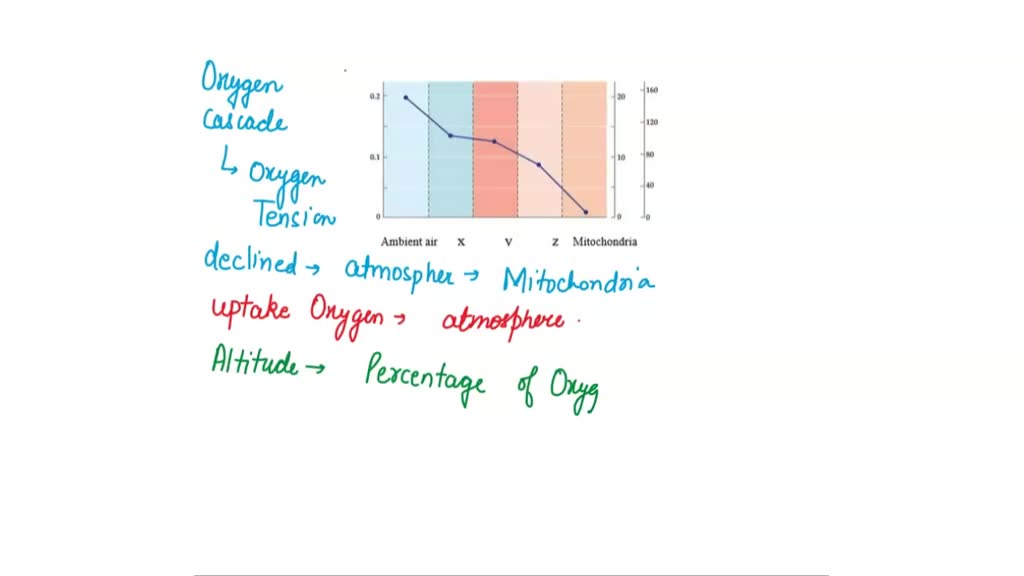 Oxygen
Cascade
↳ Oxygen
Tension
0.2
0.1
0
20
10
0
160
120
80
40
0
Ambient air X V Z Mitochondria
declined → atmospher → Mitochondria
uptake Oxygen → atmosphere.
Altitude → Percentage of Oxyg